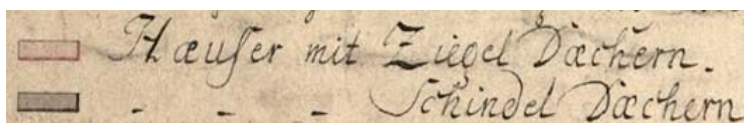 Hæuſer mit Ziegel Dæchern.
- - - Schindel Dæchern